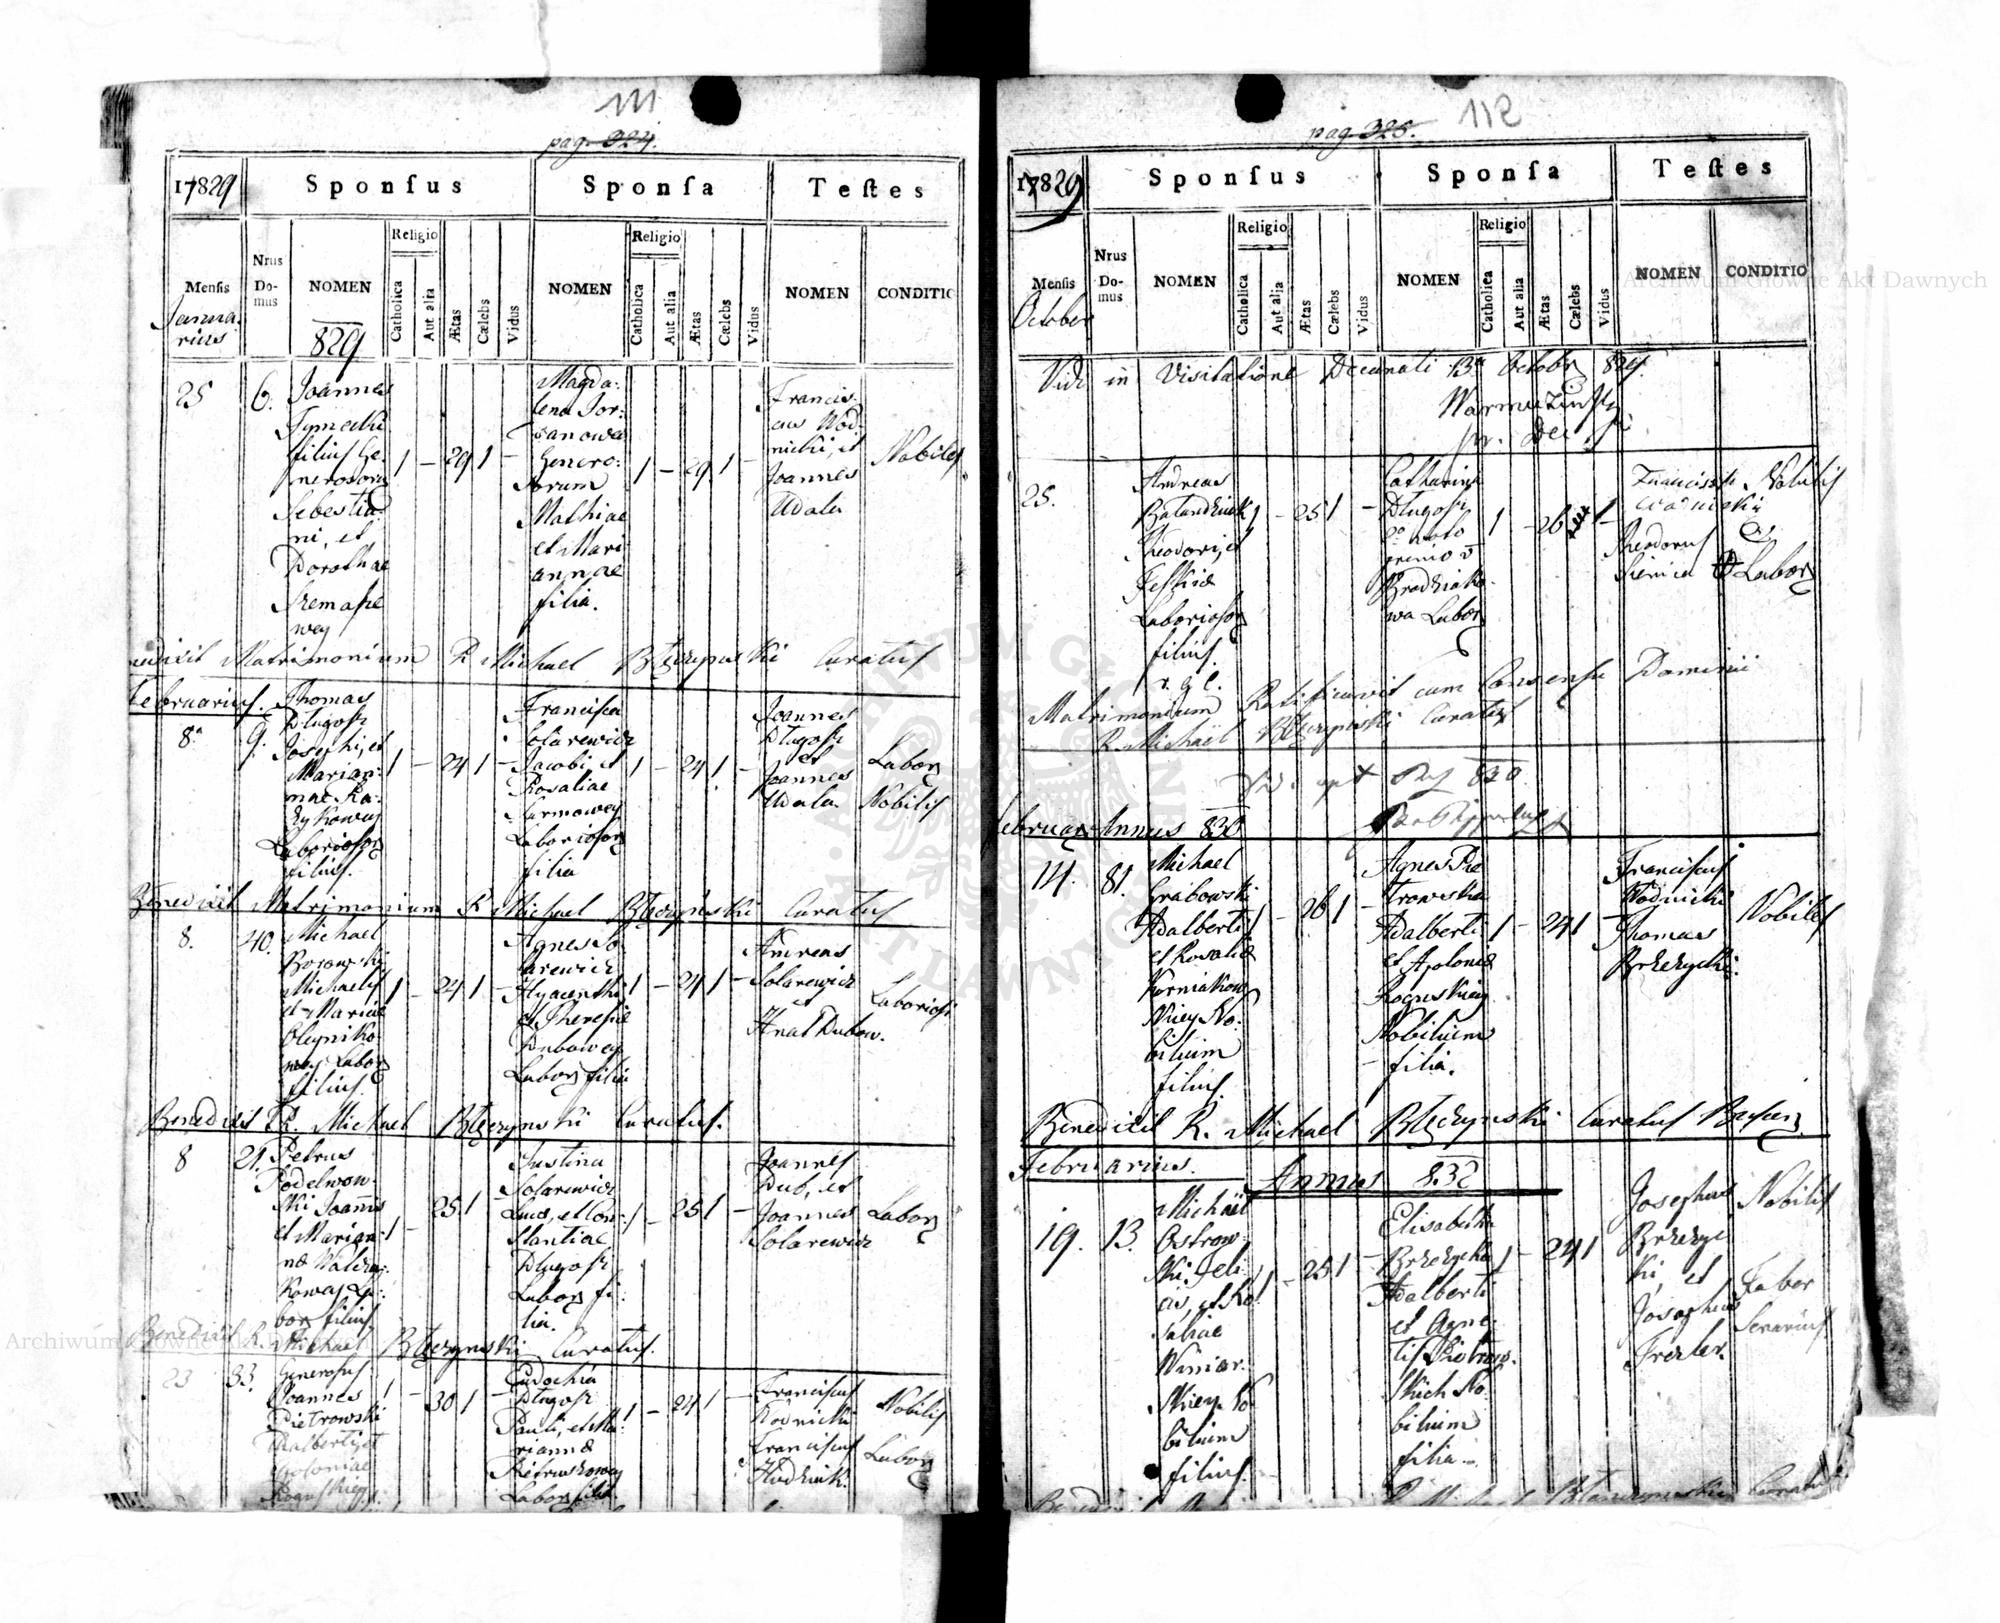 111
pag. 324.
17829
Sponſus
Sponſa
Teſtes
Menſis
Nrus Do-mus
NOMEN
Religio
Catholica
Aut alia
Ætas
Cælebs
Vidus
NOMEN
Religio
Catholica
Aut alia
Ætas
Cælebs
Vidus
NOMEN
CONDITIO
Janua:
rius
829
25
6.
Joannes
filius Ge:
nerosorum
Sebestia
ni, et
Dorothae
wey
1 – 29 1 –
Magda:
lena
Genero:
sorum
Mathiae
et Mari
annae
filia.
1 – 29 1 –
Francis:
cus Wod
nicki, et
Joannes
Udala
Nobiles
Matrimonium R Michael Błęczynski Curatus
Februarius.
8a
9.
Thomas
Długosz
Josephi, et
Marian:
nae Ra:
Laboriosor
filius.
1 – 24 1 –
Francisca
Solarewicz
Jacobi, et
Rosaliae
Laboriosor
filia
1 – 24 1 –
Joannes
Długosz
et
Joannes
Udala
Labor
Nobilis
Benedixit Matrimonium R Michael Błęczynski Curatus
8.
40.
Michael
Borowski
Michaelis
et Mariae
Oleyniko:
wey Labor
filius.
1 – 24 1 –
Agnes So
larewicz
Hyacenthi
et Theresiae
Dubowey
Labor filia
1 – 24 1 –
Andreas
Solarewicz
et
Hnat Dubow.
Laboriosi
Benedixit R. Michael Błęczynski Curatus.
8
21.
Petrus
Podelwow
ski Joannis
et Marian:
nae
kowey La:
bor filius
1 – 25 1
Justina
Solarewicz
Lucae, et Con:
stantiae
Długosz
Labor fi:
lia.
1 – 25 1 –
Joannes
Dub, et
Joannes
Solarewicz
Labor
Benedixit R. Michael Błęczynski Curatus.
23
33.
Generosus
Joannes
Pietrowski
Adalberti, et
Apoloniae
Roguskiey
1 – 30 1
Eudochia
Długosz
Pauli, et Ma:
riannae
Pietruszkowey
Labor filia
1 – 24 1 –
Franciscus
Wodnicki
Franciscus
Hudzik
Nobilis
Labor
112
pag 325.
17829
Sponſus
Sponſa
Teſtes
Menſis
Nrus Do-mus
NOMEN
Religio
Catholica
Aut alia
Ætas
Cælebs
Vidus
NOMEN
Religio
Catholica
Aut alia
Ætas
Cælebs
Vidus
NOMEN
CONDITIO
October
Vidi in Visitatione Decanali 13a Octobr 829.
25.
Andreas
Theodori, et
Laboriosor
filius
1 – 25 1 –
Catharina
Długosz
2o voto
primo v
wa Labor
1 – 26
Theodorus
Nobilis
et
Labor
Matrimonium Ratificavit cum Consensu Dominii
R. Michaël Błęczynski Curatus
830
Februar Annus 830
14.
81.
Michael
Grabowski
Adalberti
et Rosaliae
Korniakow
skiey No:
bilium
filius
1 – 26 1 –
Agnes Pie
trowska
Adalberti
et Apoloniae
Roguskiey
Nobilium
filia.
1 – 24 1 –
Franciscus
Wodnicki
Thomas
Brzezycki.
Nobiles
Benedixit R. Michael Błęczynski Curatus
Februarius.
Annus 832
19.
13.
Michaël
Ostrow:
ski Feli:
cis, et Ro:
saliae
Winiar:
skiey No
bilium
filius.
1 – 25 1 –
Elisabetha
Brzezycka
Adalberti
et Agne:
tis Pietrow:
skich No:
bilium
filia –
1 – 24 1
Josephus
Brzezyc
ki, et
Josephus
Nobilis
Faber
Curatus
Archiwum Główne Akt Dawnych
Archiwum Główne Akt Dawnych
ARCHIWUM GŁÓWNE AKT DAWNYCH